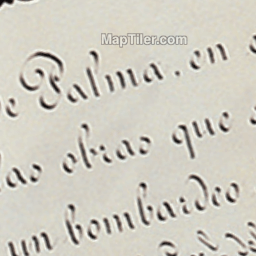 MapTiler.com
e Palma. en
obrao que
um bombardeo